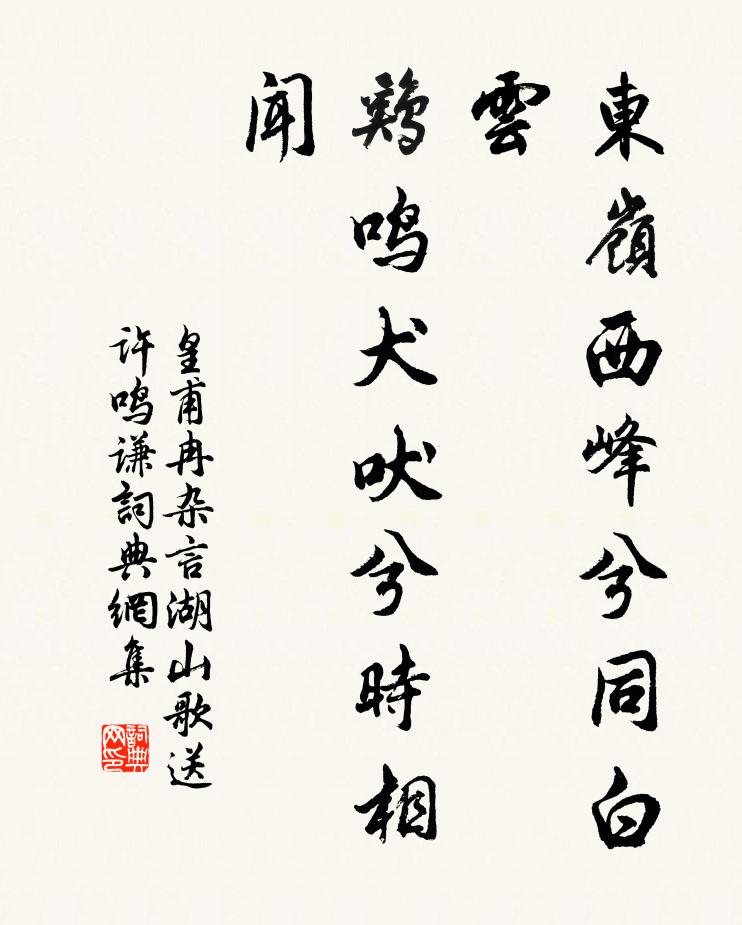 東嶺西峰兮同白
雲
鷄鳴犬吠兮時相
聞
皇甫冉杂言湖山歌送
许鸣谦詞典網集
詞典
网印